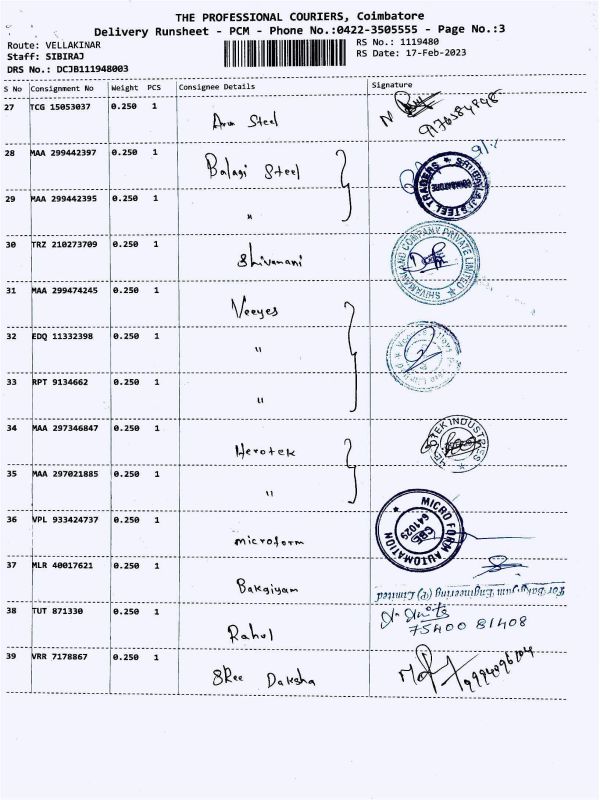 THE PROFESSIONAL COURIERS, Coimbatore
Delivery Runsheet - PCM - Phone No.:0422-3505555 - Page No.:3
Route: VELLAKINAR
RS No.: 1119480
Staff: SIBIRAJ
RS Date: 17-Feb-2023
DRS No.: DCJB111948003
S No Consignment No Weight PCS Consignee Details Signature
27 TCG 15053037 0.250 1
Arun Steel
28 MAA 299442397 0.250 1
Balagi Steel
STEEL TRADERS
COIMBATORE
29 MAA 299442395 0.250 1
"
30 TRZ 210273709 0.250 1
Shivamani
SHIVAMANI AND COMPANY PRIVATE LIMITED
31 MAA 299474245 0.250 1
Veeyes
32 EDQ 11332398 0.250 1
"
33 RPT 9134662 0.250 1
"
34 MAA 297346847 0.250 1
Herotek
INDUSTRIES
35 MAA 297021885 0.250 1
"
36 VPL 933424737 0.250 1
microform
MICRO FORM AUTOMATION
CBE
641029
37 MLR 40017621 0.250 1
Bakgiyam
For Bakgiyam Engineering (P) Limited
38 TUT 871330 0.250 1
Rahul
75400 81408
39 VRR 7178867 0.250 1
SRee Daksha